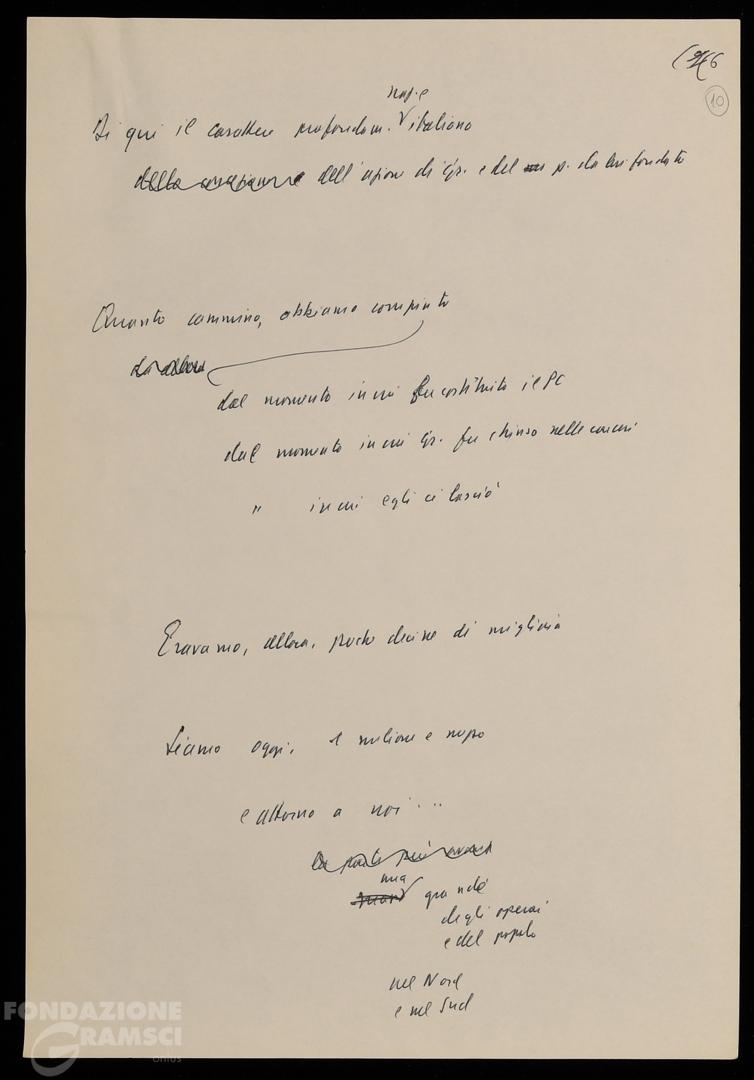 10
Di qui il carattere profondam. italiano
dell'azione di Gr. e del p. da lui fondato
Quanto cammino, abbiamo compiuto
dal momento in cui fu costituito il PC
dal momento in cui Gr. fu chiuso nelle carceri
" in cui egli ci lasciò
Eravamo, allora, poche decine di migliaia
Siamo oggi, 1 milione e mezzo
e attorno a noi...
la parte più
una
grande
degli operai
e del popolo
nel Nord
e nel Sud
FONDAZIONE
GRAMSCI
onlus